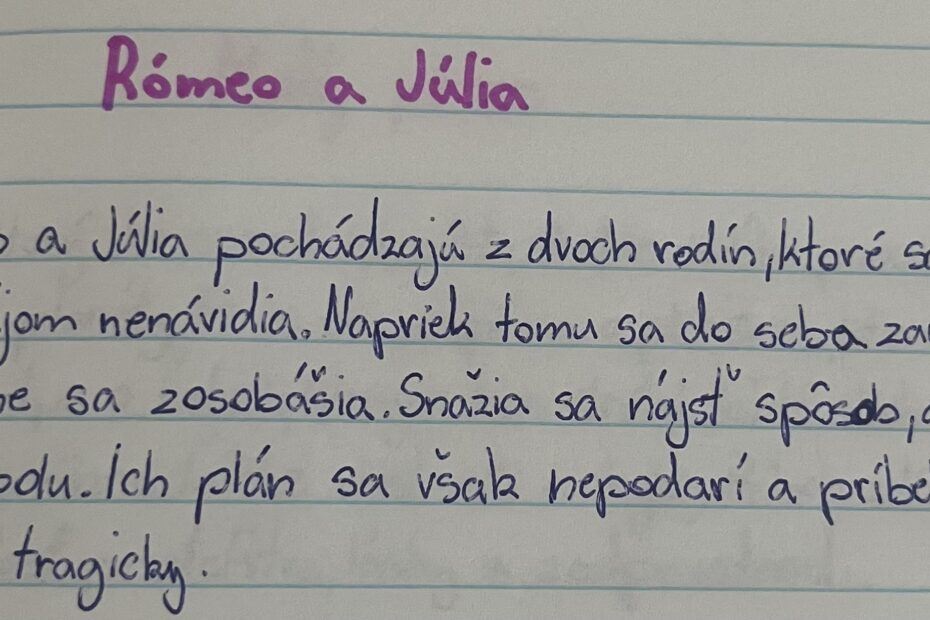 Rómeo a Júlia
a Júlia pochádzajú z dvoch rodín, ktoré
nenávidia. Napriek tomu sa do seba
sa zosobášia. Snažia sa nájsť spôsob,
Ich plán sa však nepodarí a
tragicky.